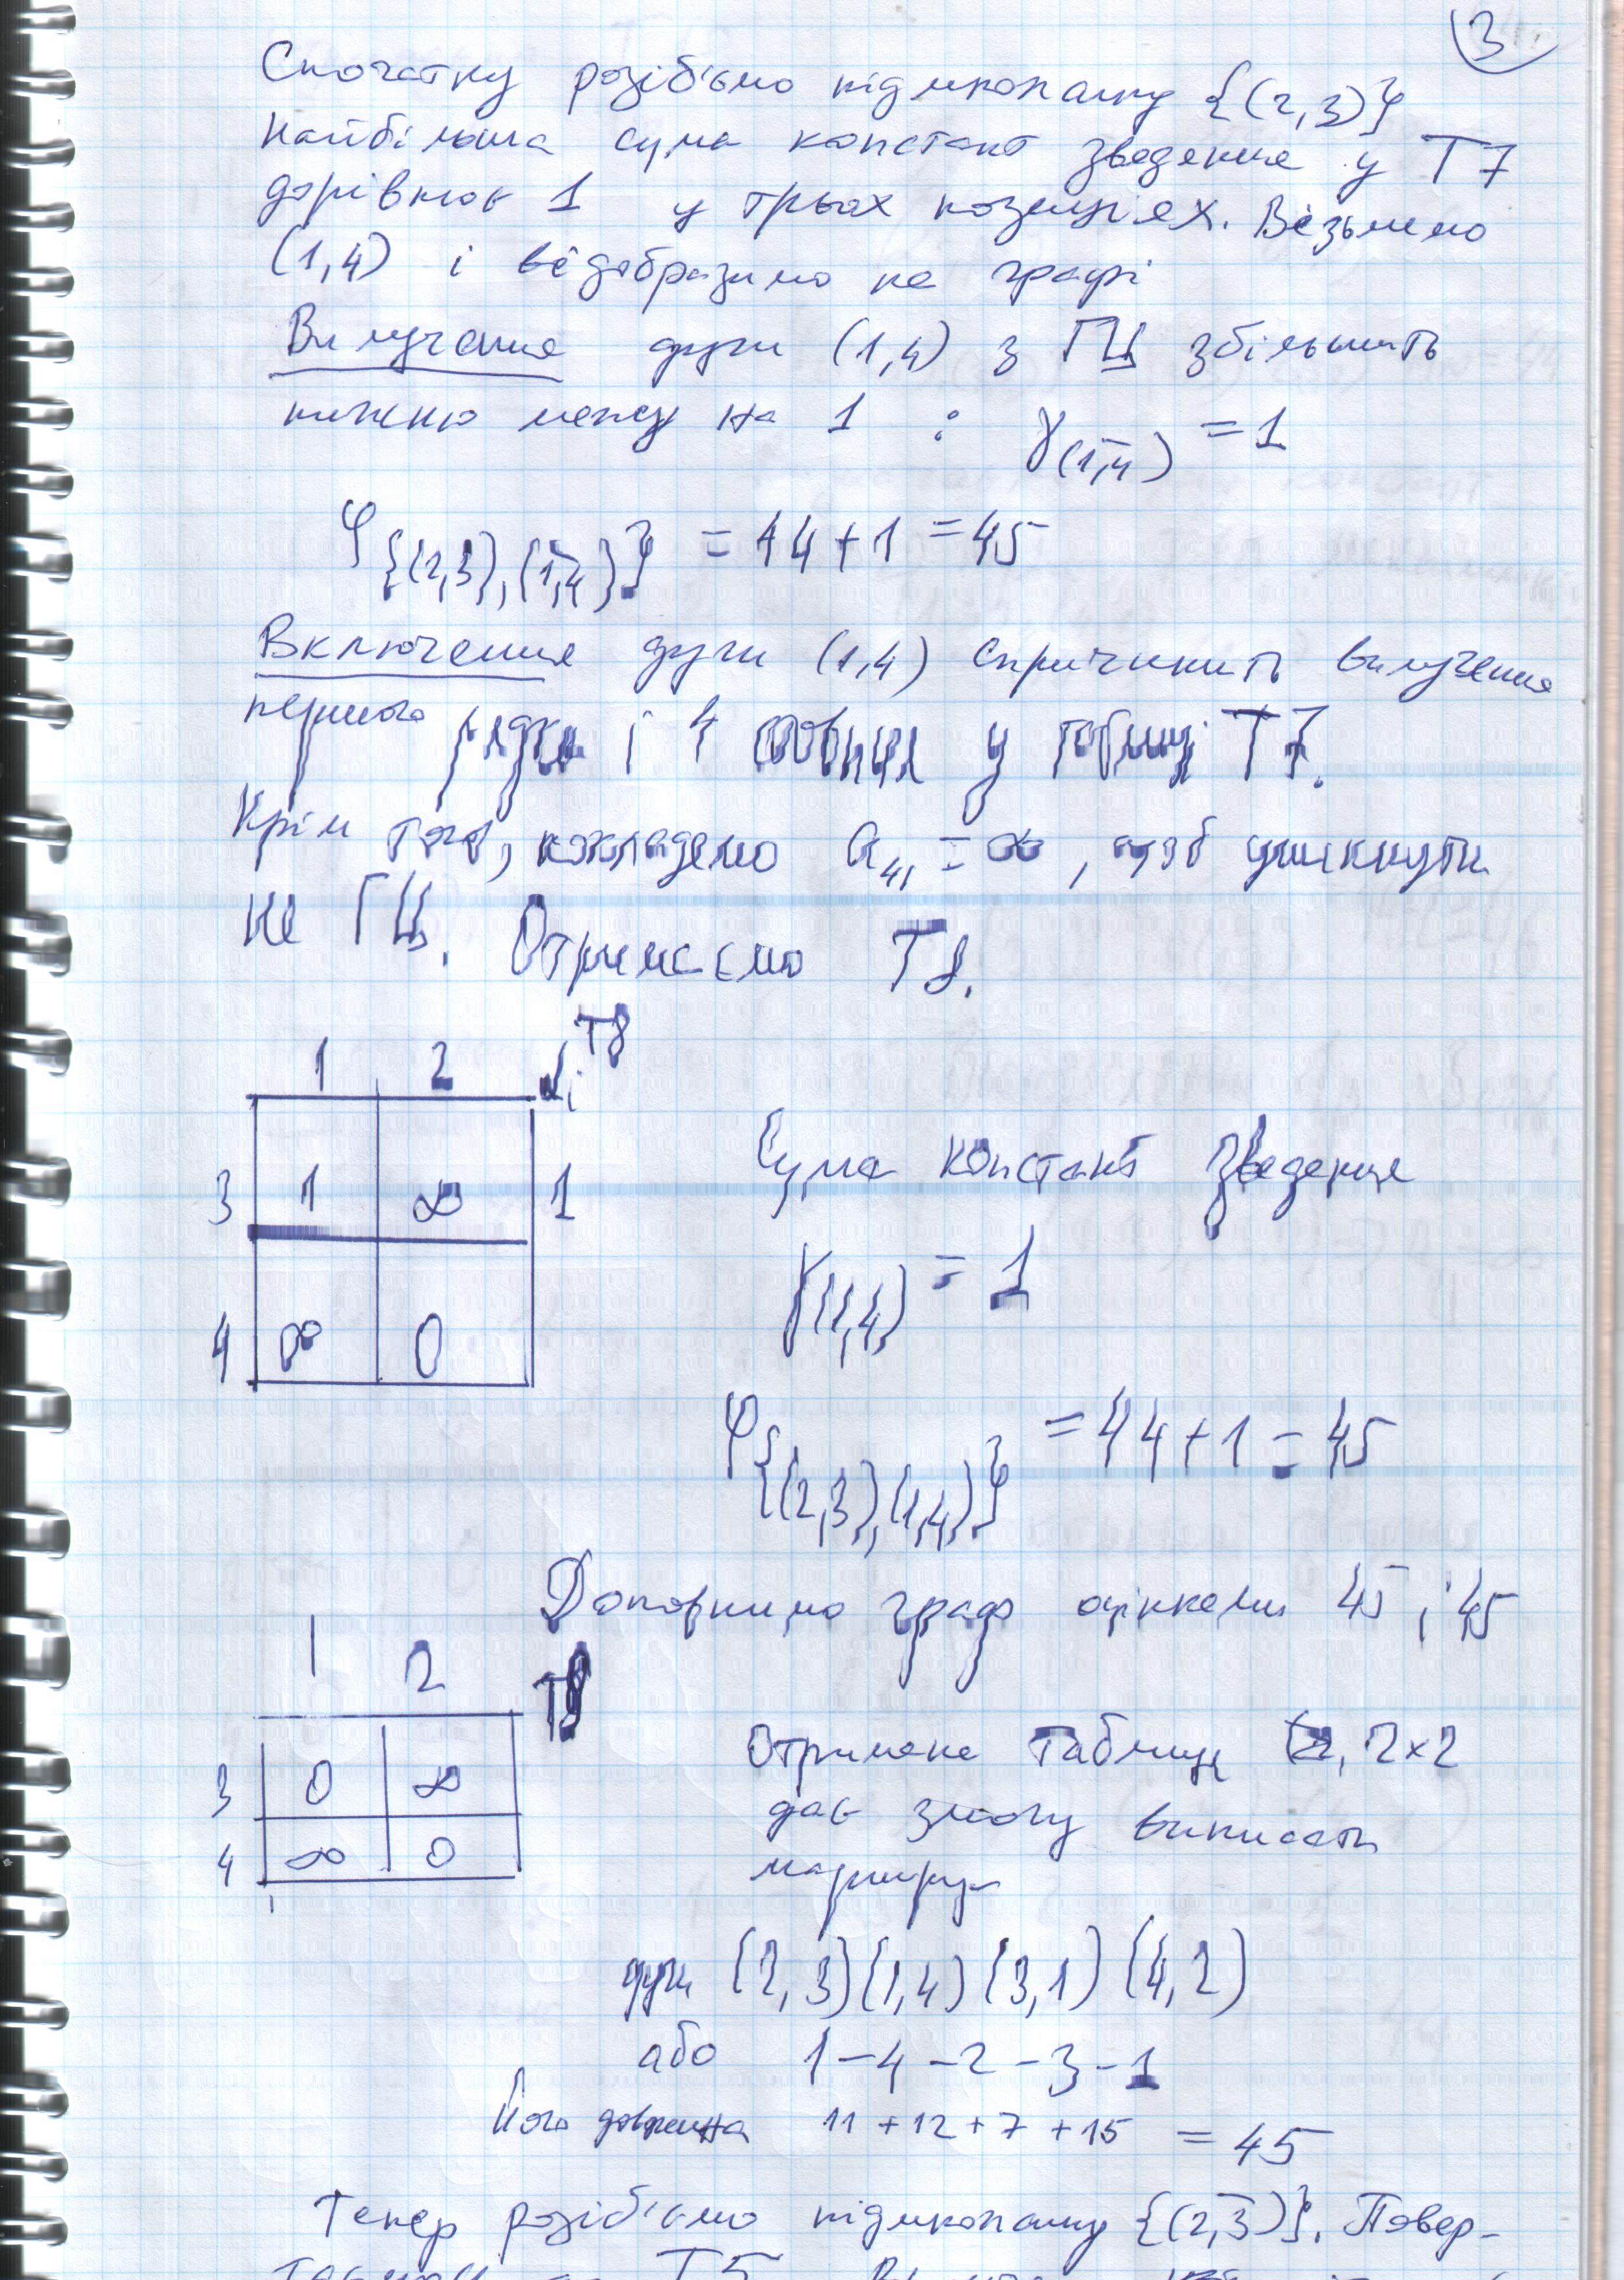 3
Спочатку розіб'ємо підмножину {(2,3)}
Найбільша сума констант зведення у Т7
дорівнює 1 у трьох позиціях. Візьмемо
(1,4) і відобразимо на графі
Вилучення дуги (1,4) з ГЦ збільшить
нижню межу на 1 : γ(1,4)‾ = 1
φ{(2,3),(1,4)‾} = 44+1 = 45
Включення дуги (1,4) спричинить вилучення
першого рядка і 4 стовпця у таблиці Т7.
Крім того, покладемо a₄₁ = ∞, щоб уникнути
не ГЦ. Отримаємо Т8.
1 2 αᵢ Т8
3 1 ∞ 1
4 ∞ 0
Сума констант зведення
γ(1,4) = 1
φ{(2,3),(1,4)} = 44+1 = 45
Доповнимо граф оцінками 45 і 45
1 2 Т9
3 0 ∞
4 ∞ 0
Отримана таблиця 2×2
дає змогу виписати
маршрут
дуги (2,3)(1,4)(3,1)(4,2)
або 1-4-2-3-1
Його довжина 11+12+7+15 = 45
Тепер розіб'ємо підмножину {(2,3)‾}. Повер-
Т5